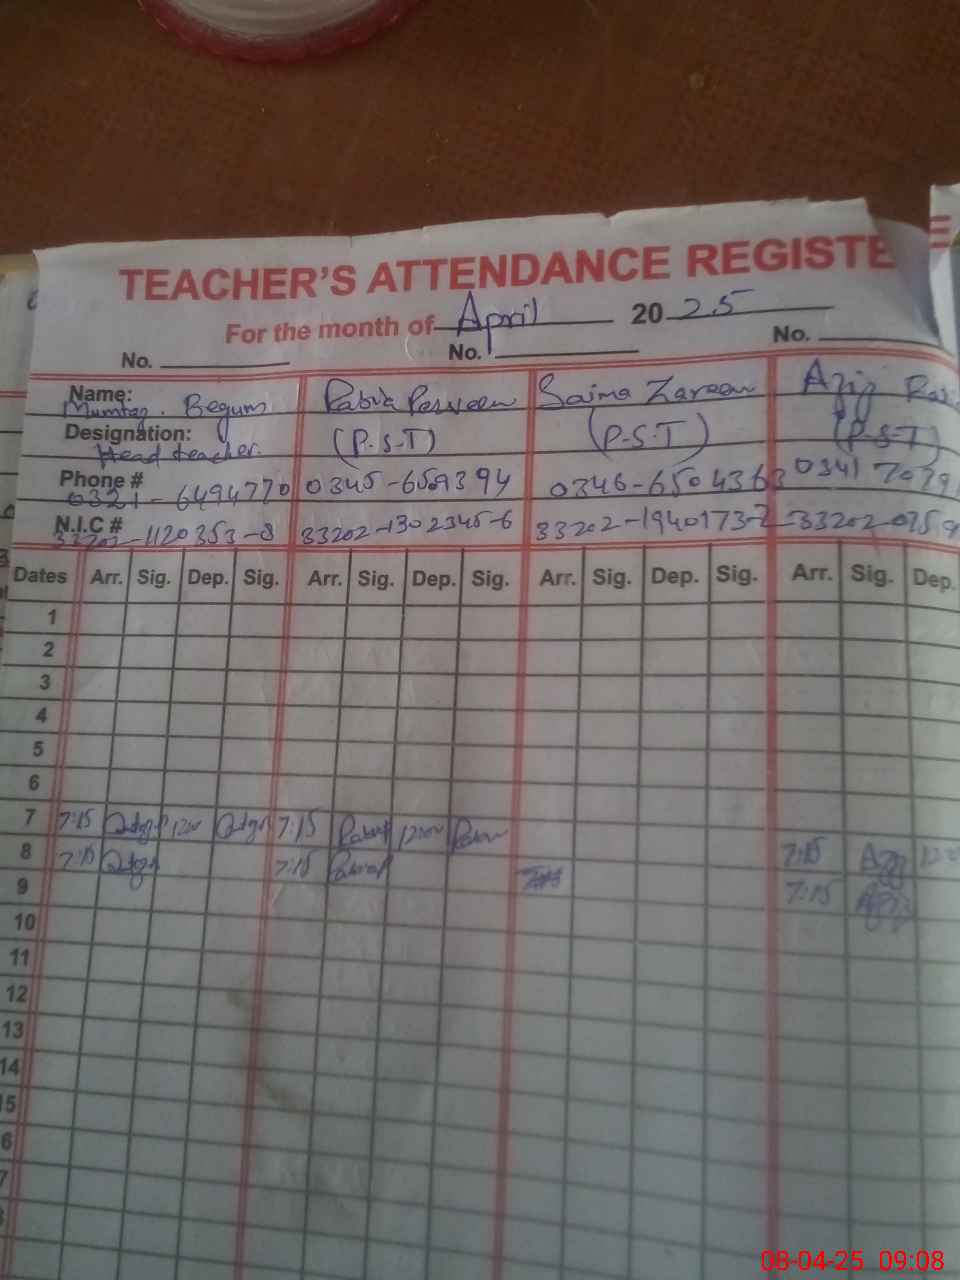 TEACHER'S ATTENDANCE REGISTE
For the month of April 2025
No. No. No.
Name: Mumtaz Begum Rabia Parveen Saima Zareen Aziz
Designation: Head teacher. (P.S.T) (P.S.T) (P.S.T)
Phone # 0321-6494770 0345-6509394 0346-6504363 0341 7079
N.I.C # 33202-1120353-8 33202-1302345-6 33202-1940173-2 33202-0759
Dates Arr. Sig. Dep. Sig. Arr. Sig. Dep. Sig. Arr. Sig. Dep. Sig. Arr. Sig. Dep.
1
2
3
4
5
6
7 7:15 1200 7:15 Rabia 1200
8 7:15 7:15 Rabia 7:15 Aziz 1200
9 7:15 Aziz
10
11
12
13
14
15
6
7
08-04-25 09:08